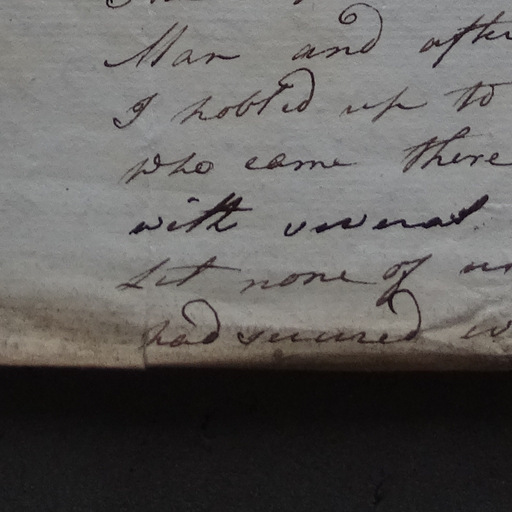 Man and after
I hobled up to
who came there
with several
Let none of us
had secured